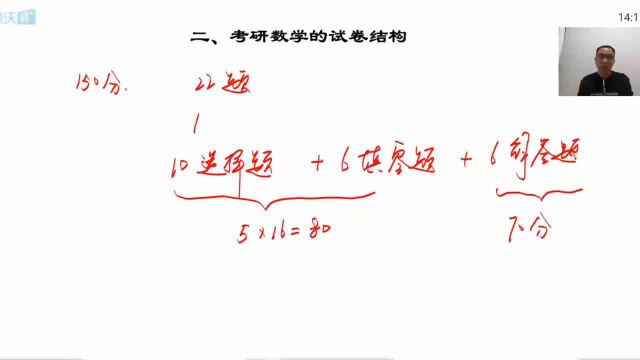 易沃
14:1
二、考研数学的试卷结构
150分. 22题
10选择题 + 6填空题 + 6解答题
5×16=80 70分